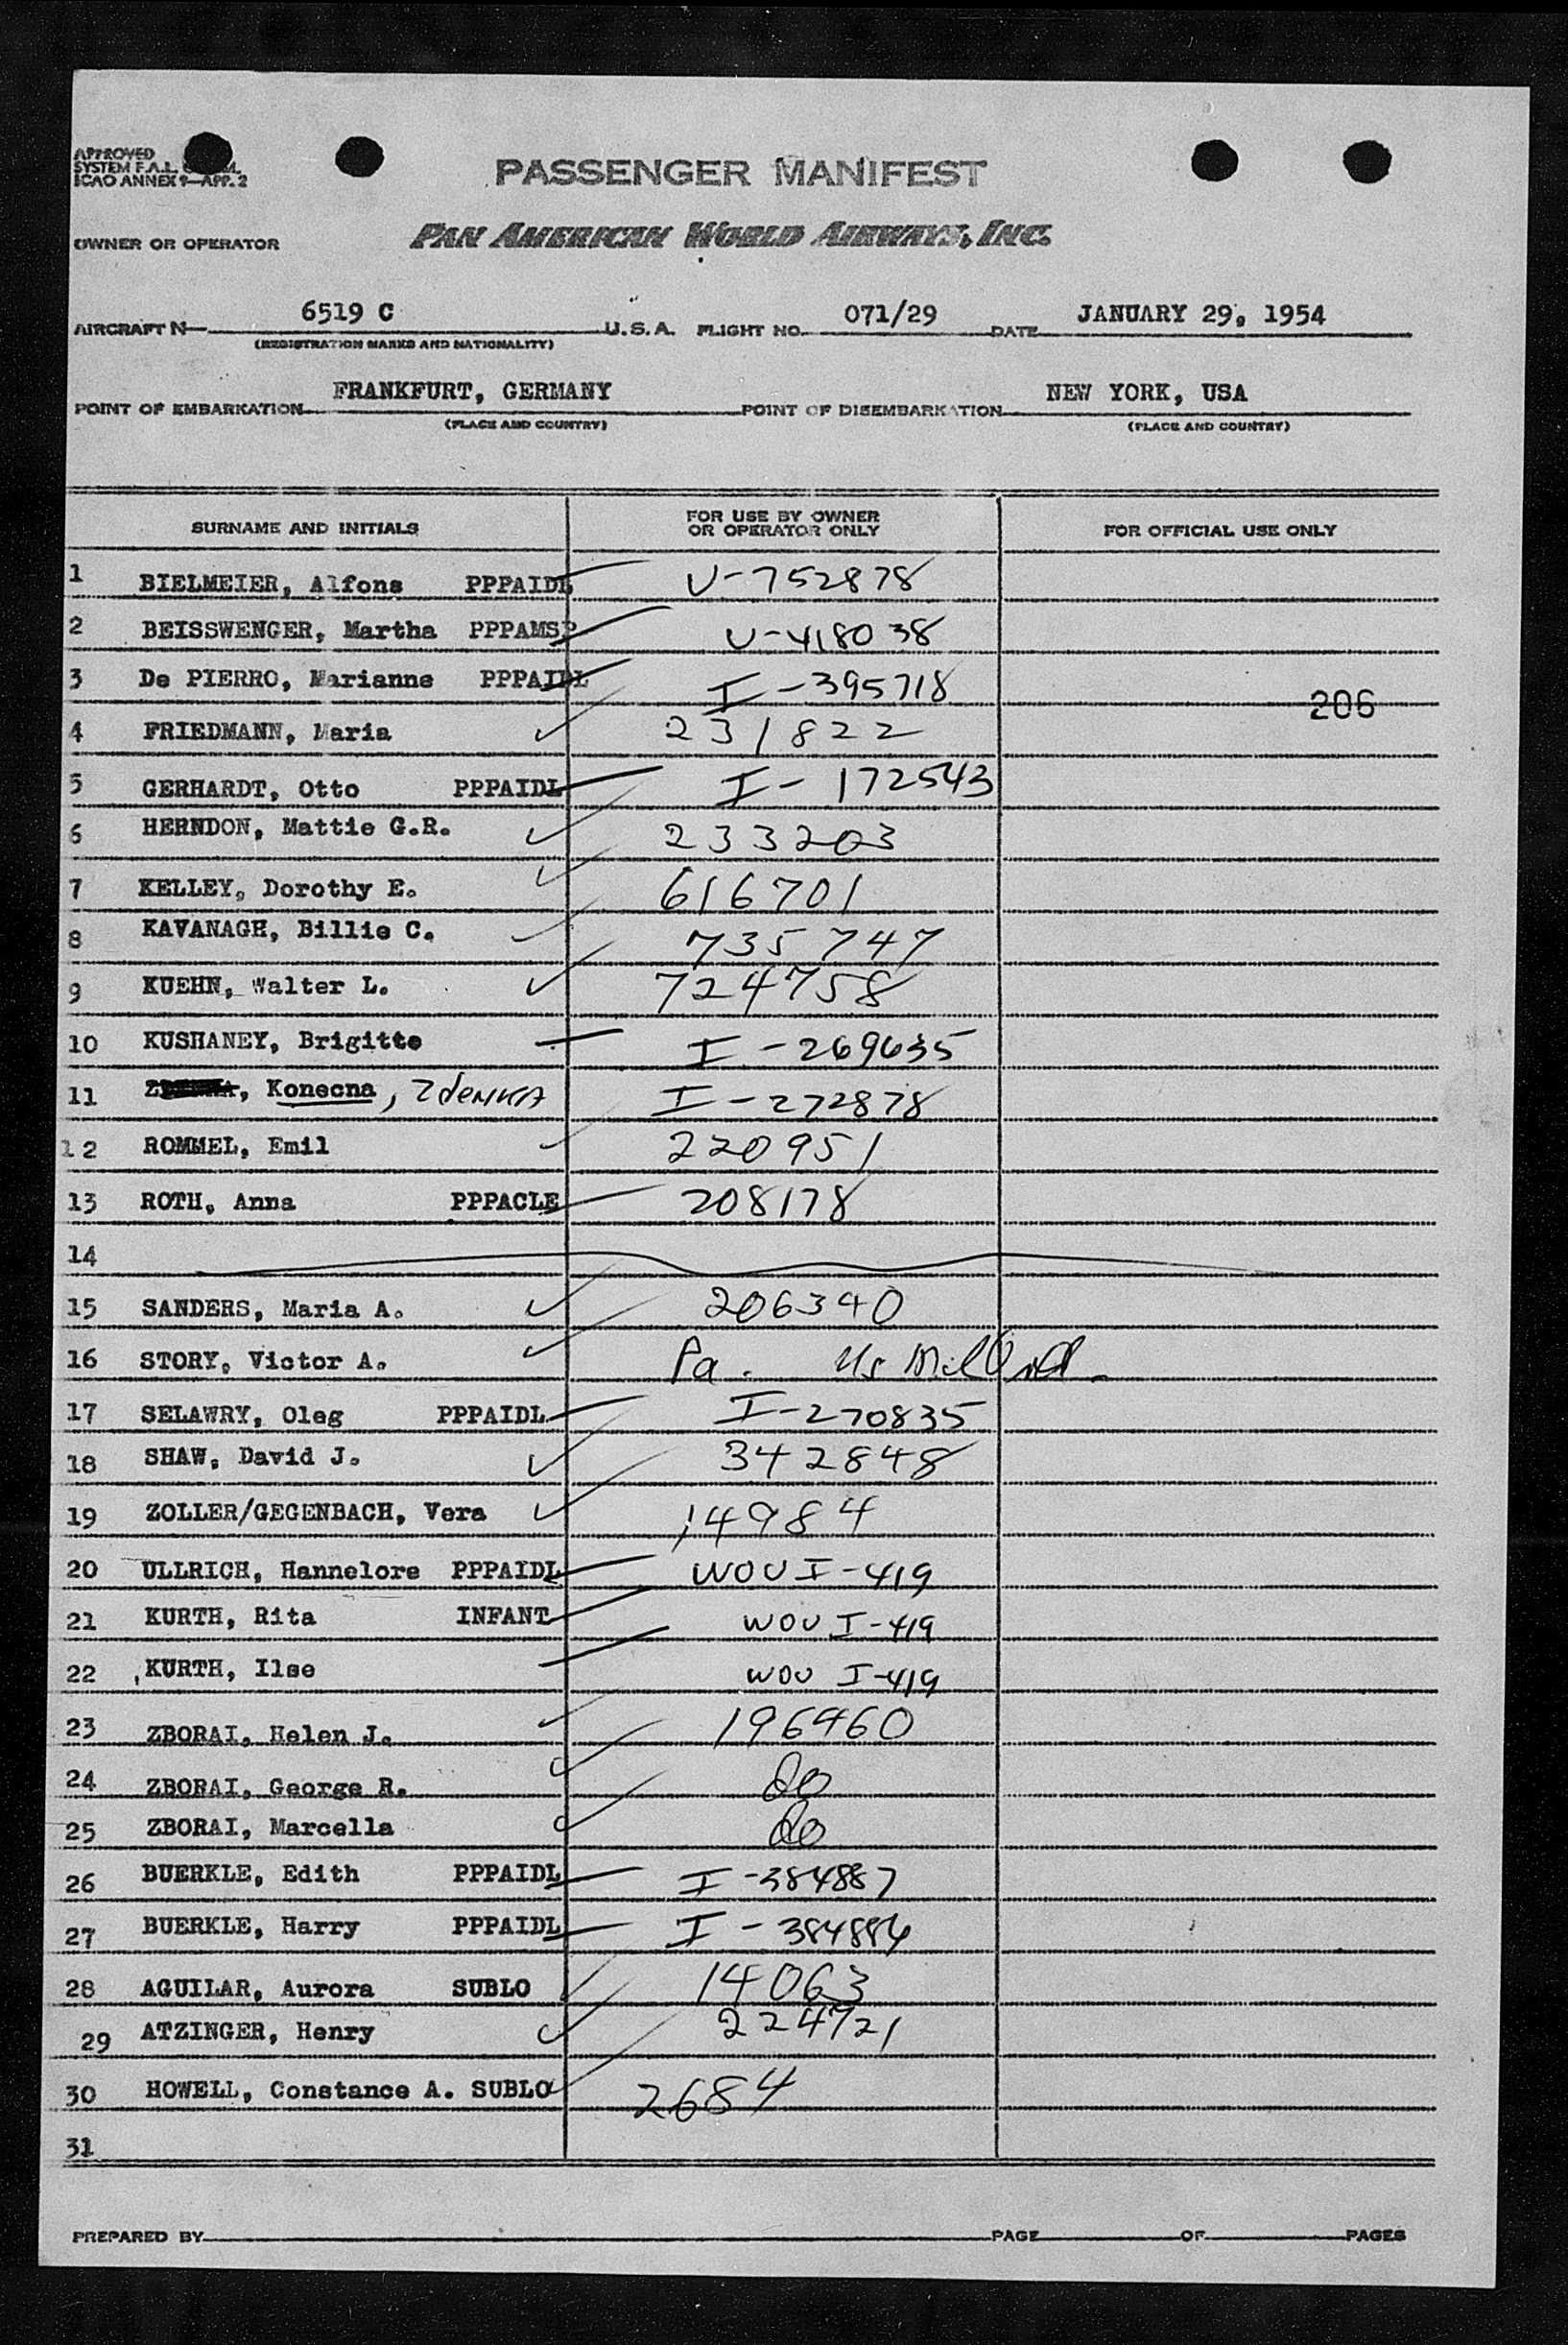 APPROVED
SYSTEM F.A.L.
ICAO ANNEX 9—APP. 2
PASSENGER MANIFEST
OWNER OR OPERATOR PAN AMERICAN WORLD AIRWAYS, INC.
AIRCRAFT N— 6519 C U.S.A. FLIGHT NO. 071/29 DATE JANUARY 29, 1954
(REGISTRATION MARKS AND NATIONALITY)
POINT OF EMBARKATION FRANKFURT, GERMANY POINT OF DISEMBARKATION NEW YORK, USA
(PLACE AND COUNTRY) (PLACE AND COUNTRY)
SURNAME AND INITIALS FOR USE BY OWNER OR OPERATOR ONLY FOR OFFICIAL USE ONLY
1 BIELMEIER, Alfons PPPAIDL U-752878
2 BEISSWENGER, Martha PPPAMSP U-418038
3 De PIERRO, Marianne PPPAIDL I-395718
206
4 FRIEDMANN, Maria 231822
5 GERHARDT, Otto PPPAIDL I-172543
6 HERNDON, Mattie G.R. 233203
7 KELLEY, Dorothy E. 616701
8 KAVANAGH, Billie C. 735747
9 KUEHN, Walter L. 724758
10 KUSHANEY, Brigitte I-269635
11 Konecna, ZdENKA I-272878
12 ROMMEL, Emil 220951
13 ROTH, Anna PPPACLE 208178
14
15 SANDERS, Maria A. 206340
16 STORY, Victor A. Pa.
17 SELAWRY, Oleg PPPAIDL I-270835
18 SHAW, David J. 342848
19 ZOLLER/GEGENBACH, Vera 14984
20 ULLRICH, Hannelore PPPAIDL WOU I-419
21 KURTH, Rita INFANT WOU I-419
22 KURTH, Ilse WOU I-419
23 ZBORAI, Helen J. 196460
24 ZBORAI, George R. do
25 ZBORAI, Marcella do
26 BUERKLE, Edith PPPAIDL I-384887
27 BUERKLE, Harry PPPAIDL I-384886
28 AGUILAR, Aurora SUBLO 14063
29 ATZINGER, Henry 224721
30 HOWELL, Constance A. SUBLO 2684
31
PREPARED BY PAGE OF PAGES